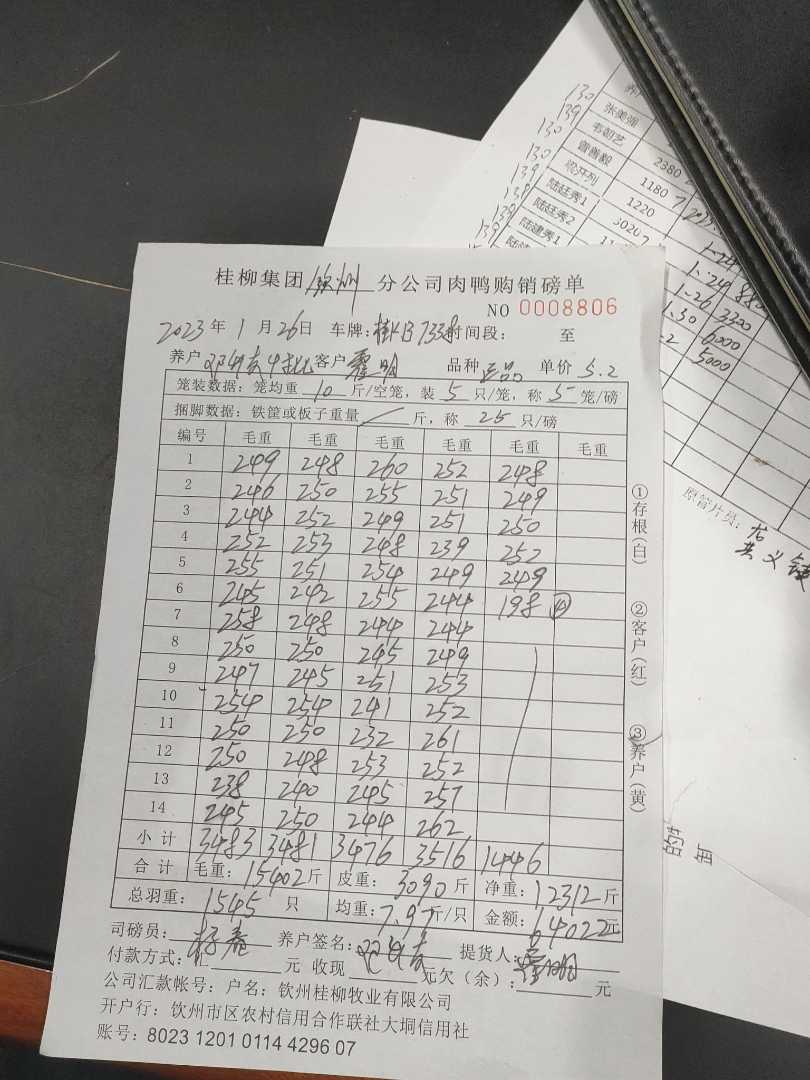 桂柳集团 钦州 分公司肉鸭购销磅单
NO 0008806
2023年 1月 26日 车牌: 时间段: 至
养户 客户 霍明 品种 正品 单价 5.2
笼装数据: 笼均重 10 斤/空笼, 装 5 只/笼, 称 5 笼/磅
捆脚数据: 铁筐或板子重量 斤, 称 25 只/磅
编号 毛重 毛重 毛重 毛重 毛重 毛重
1 249 248 260 252 248
2 246 250 255 251 249
3 244 252 249 251 250
4 252 253 248 239 252
5 255 251 254 249 249
6 245 242 255 244 198 ④
7 258 248 244 244
8 250 250 245 249
9 247 245 251 253
10 254 254 241 252
11 250 250 232 261
12 250 248 253 252
13 238 240 245 257
14 245 250 244 262
小计 3483 3481 3476 3516 1446
合计 毛重: 15402斤 皮重: 3090斤 净重: 12312斤
总羽重: 1545 只 均重: 7.97斤/只 金额: 64022元
司磅员: 养户签名: 提货人: 霍明
付款方式: 汇 元 收现 元欠(余): 元
公司汇款帐号: 户名: 钦州桂柳牧业有限公司
开户行: 钦州市区农村信用合作联社大垌信用社
账号: 8023 1201 0114 4296 07
①存根(白)
②客户(红)
③养户(黄)
130 张美强
139 韦朝艺 2380
130 曾善毅 1180
130 梁开列 1220
139 陆廷秀1 3020
138 陆廷秀2
139 陆建秀1
1.24
1.24 880
1.26 3300
1.30 6000
5000
原管片员: